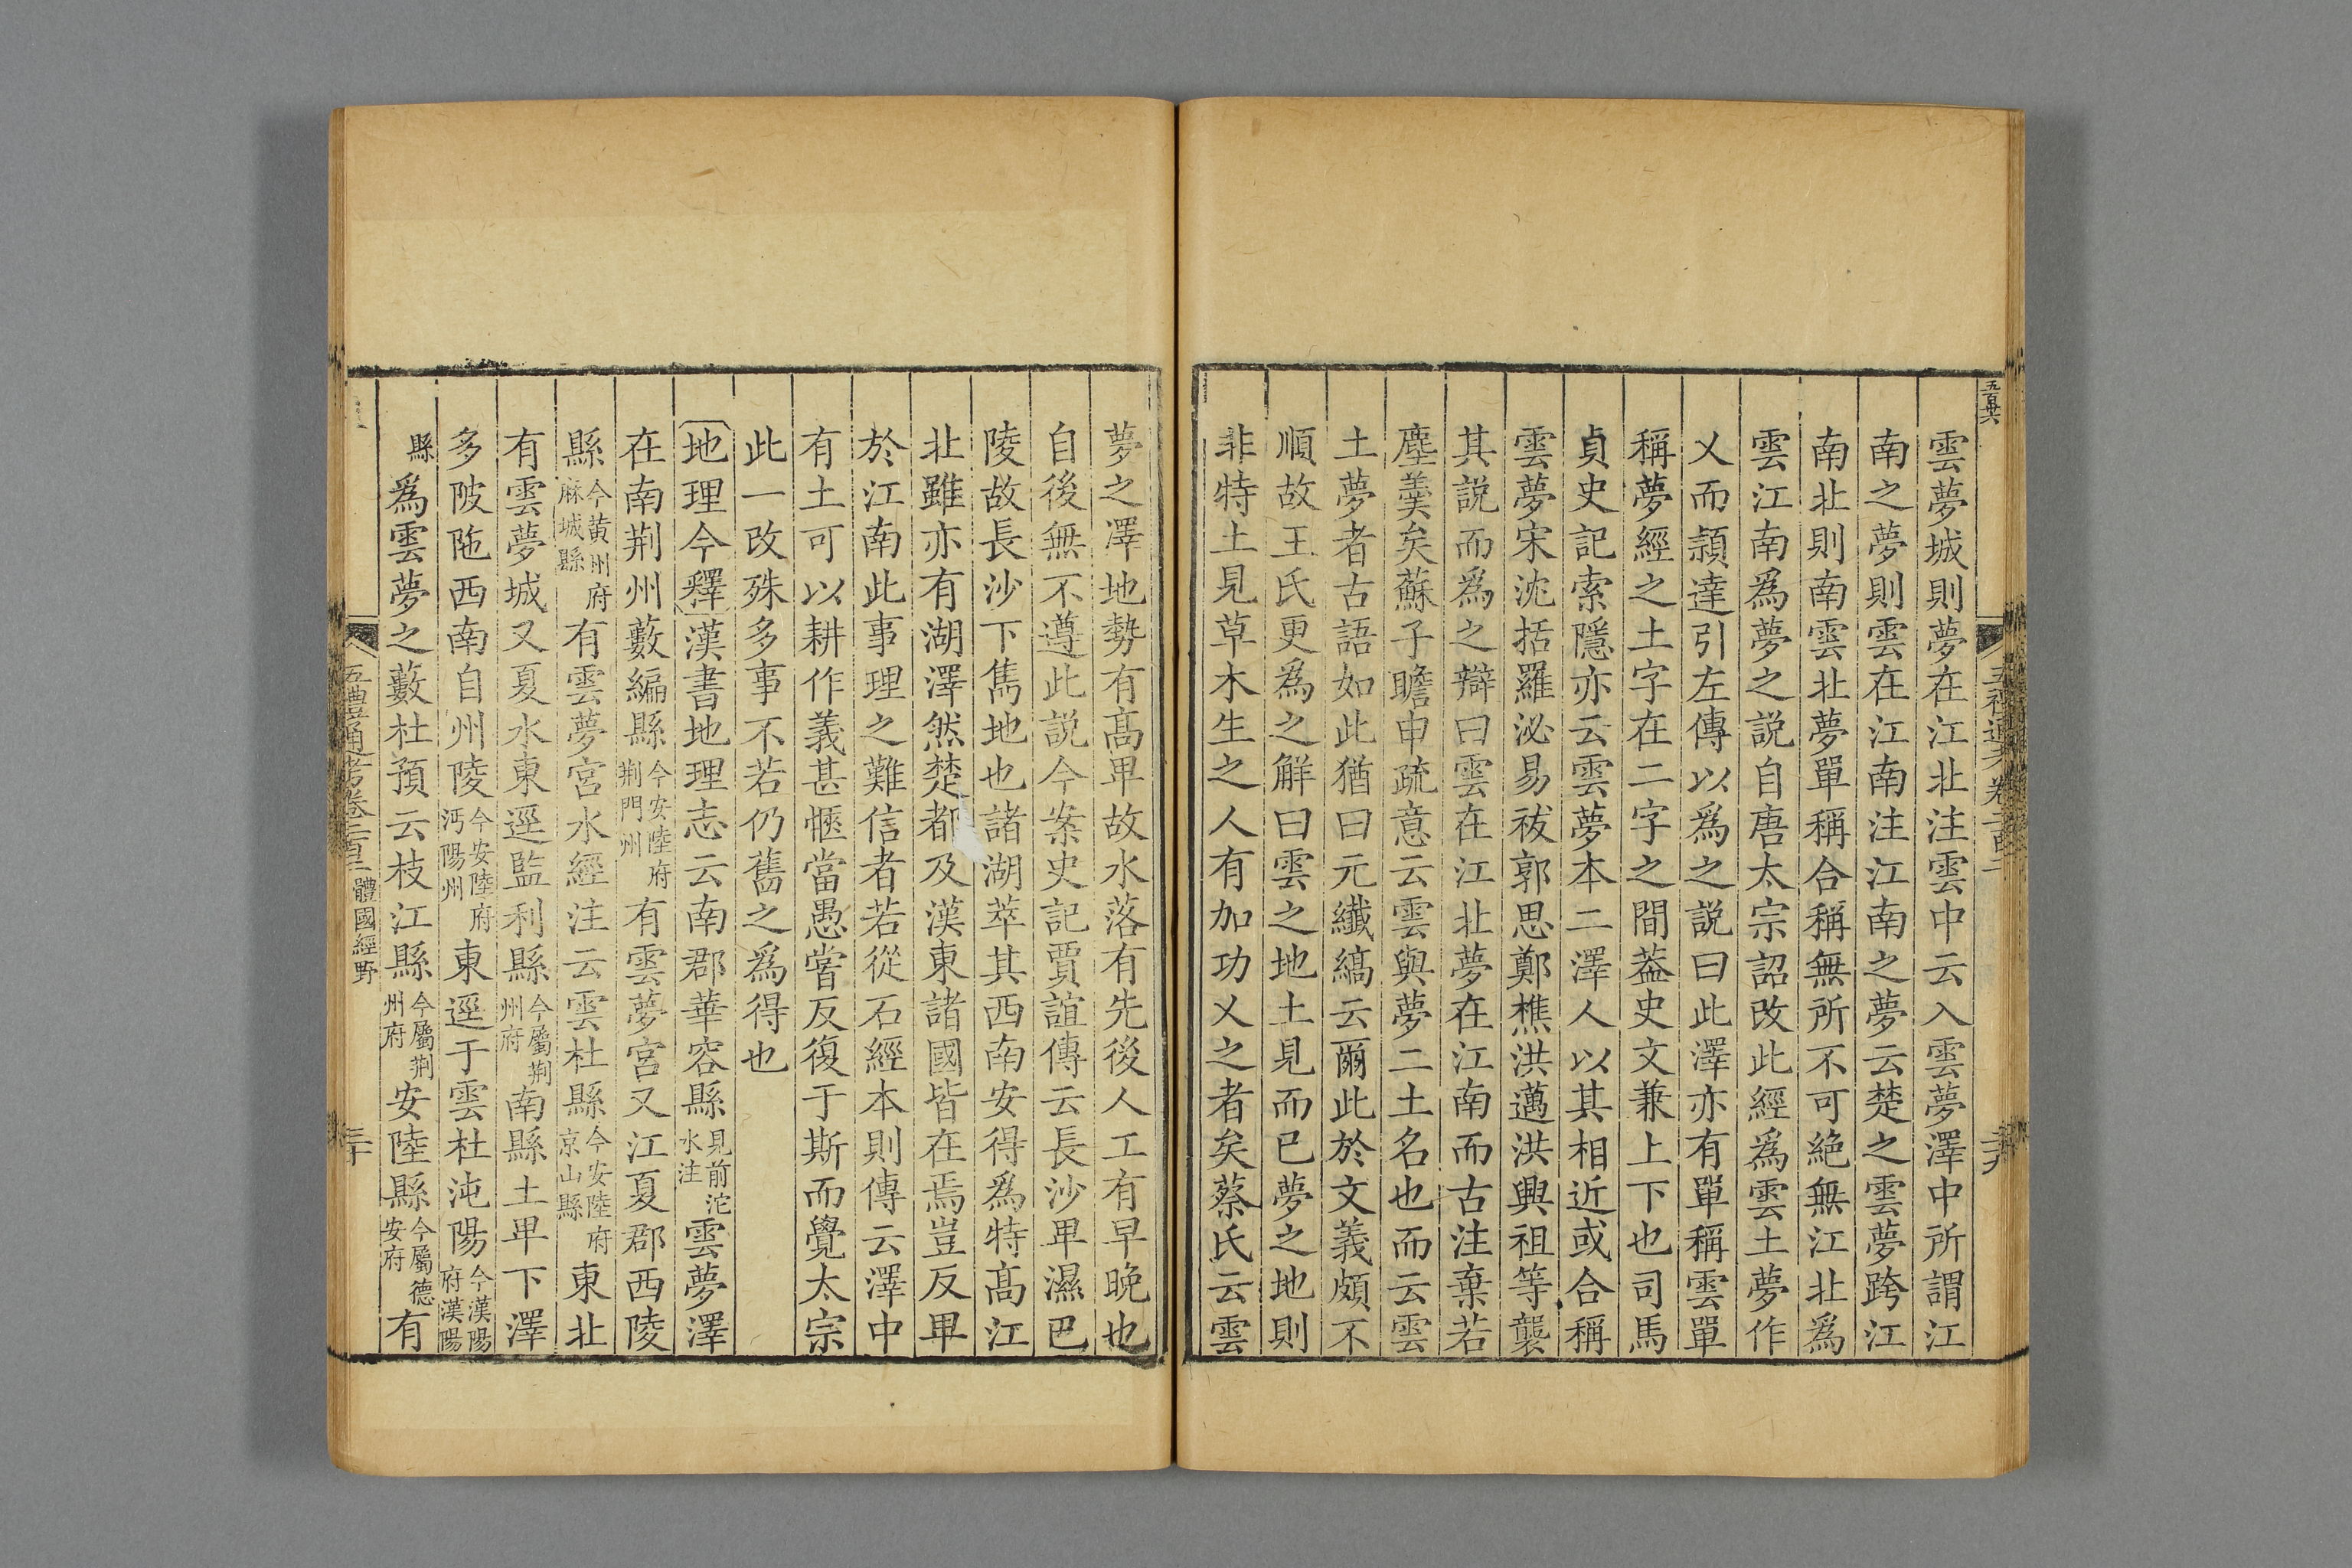 五百廿六
雲夢城則夢在江北注雲中云入雲夢澤中所謂江
南之夢則雲在江南注江南之夢云楚之雲夢跨江
南北則南雲北夢單稱合稱無所不可絶無江北爲
雲江南爲夢之說自唐太宗詔改此經爲雲土夢作
乂而頴達引左傳以爲之說曰此澤亦有單稱雲單
稱夢經之土字在二字之間葢史文兼上下也司馬
貞史記索隱亦云雲夢本二澤人以其相近或合稱
雲夢宋沈括羅泌易祓郭思鄭樵洪邁洪興祖等襲
其説而爲之辯曰雲在江北夢在江南而古注棄若
塵羹矣蘇子瞻申疏意云雲與夢二土名也而云雲
土夢者古語如此猶曰元纖縞云爾此於文義頗不
順故王氏更爲之解曰雲之地土見而已夢之地則
非特土見草木生之人有加功乂之者矣蔡氏云雲
夢之澤地勢有髙卑故水落有先後人工有早晚也
自後無不遵此説今案史記賈誼傳云長沙卑濕巴
陵故長沙下雋地也諸湖萃其西南安得爲特髙江
北雖亦有湖澤然楚都及漢東諸國皆在焉豈反卑
於江南此事理之難信者若從石經本則傳云澤中
有土可以耕作義甚愜當愚嘗反復于斯而覺太宗
此一改殊多事不若仍舊之爲得也
地理今釋漢書地理志云南郡華容縣見前沱水注雲夢澤
在南荆州藪編縣今安陸府荆門州有雲夢宮又江夏郡西陵
縣今黄州府麻城縣有雲夢宮水經注云雲杜縣今安陸府京山縣東北
有雲夢城又夏水東逕監利縣今屬荆州府南縣土卑下澤
多陂陁西南自州陵今安陸府沔陽州東逕于雲杜沌陽今漢陽府漢陽
縣爲雲夢之藪杜預云枝江縣今屬荆州府安陸縣今屬德安府有
五禮通考卷二百二 體國經野
三十